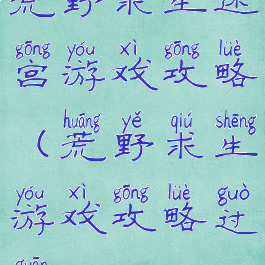 荒野求生迷
gōng yóu xì gōng lüè
宫游戏攻略
huāng yě qiú shēng
（荒野求生
yóu xì gōng lüè guò
游戏攻略过